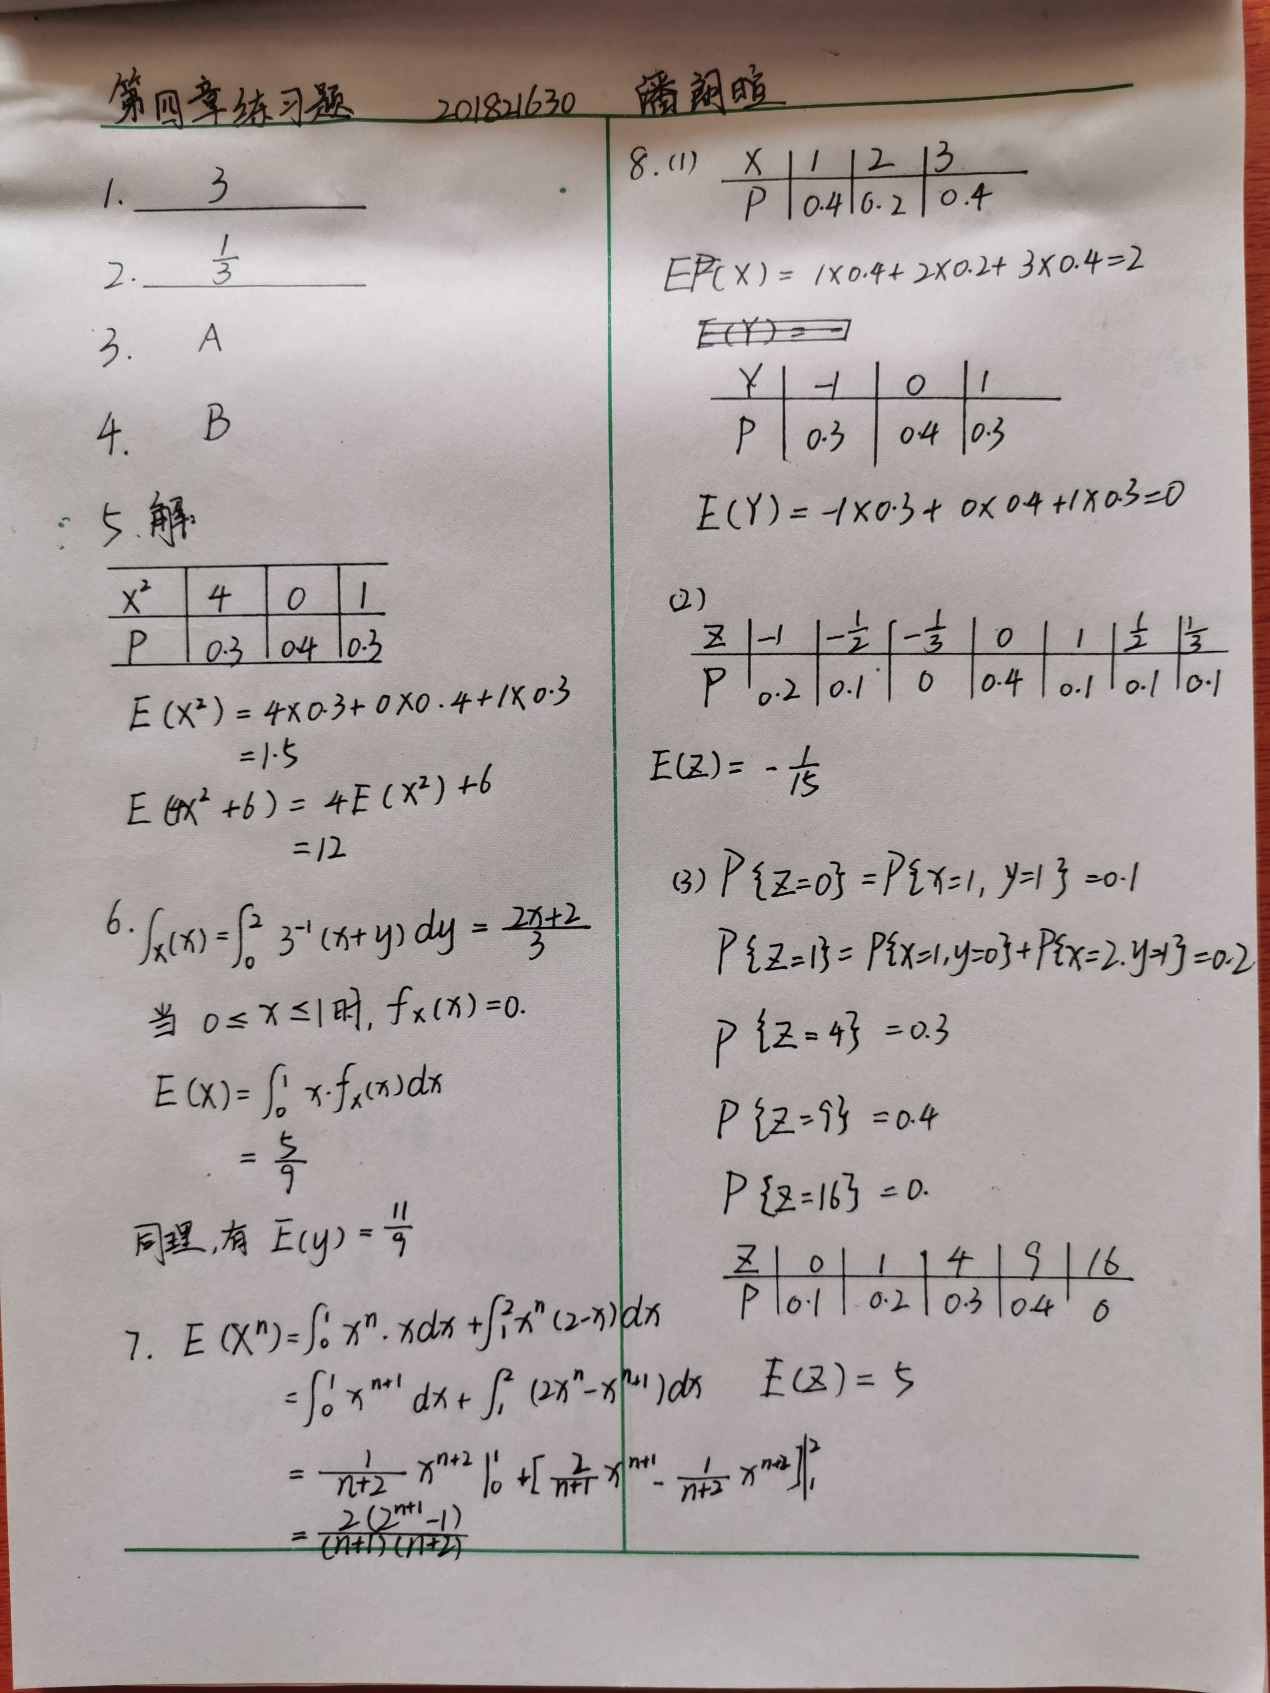 第四章练习题 201821630 潘朗暄
1. 3
2. 1/3
3. A
4. B
5. 解:
X² | 4 | 0 | 1
P | 0.3 | 0.4 | 0.3
E(X²) = 4×0.3+0×0.4+1×0.3
=1.5
E(4X²+6) = 4E(X²)+6
=12
6. ∫x(x)=∫₀² 3⁻¹(x+y)dy = (2x+2)/3
当 0≤x≤1时, fx(x)=0.
E(X)=∫₀¹ x·fx(x)dx
= 5/9
同理,有 E(y) = 11/9
7. E(Xⁿ)=∫₀¹ xⁿ·xdx+∫₁² xⁿ(2-x)dx
=∫₀¹ xⁿ⁺¹ dx+∫₁² (2xⁿ-xⁿ⁺¹)dx
= 1/(n+2) xⁿ⁺² |₀¹ +[2/(n+1) xⁿ⁺¹ - 1/(n+2) xⁿ⁺²]|₁²
= 2(2ⁿ⁺¹-1)/(n+1)(n+2)
8.(1) X | 1 | 2 | 3
P | 0.4 | 0.2 | 0.4
E(X) = 1×0.4+2×0.2+3×0.4=2
E(Y) = -
Y | -1 | 0 | 1
P | 0.3 | 0.4 | 0.3
E(Y) = -1×0.3+0×0.4+1×0.3=0
(2)
Z | -1 | -1/2 | -1/3 | 0 | 1 | 1/2 | 1/3
P | 0.2 | 0.1 | 0 | 0.4 | 0.1 | 0.1 | 0.1
E(Z) = -1/15
(3) P{Z=0} =P{x=1, y=1} =0.1
P{Z=1}=P{x=1,y=0}+P{x=2.y=1}=0.2
P{Z=4} =0.3
P{Z=9} =0.4
P{Z=16} =0.
Z | 0 | 1 | 4 | 9 | 16
P | 0.1 | 0.2 | 0.3 | 0.4 | 0
E(Z) = 5